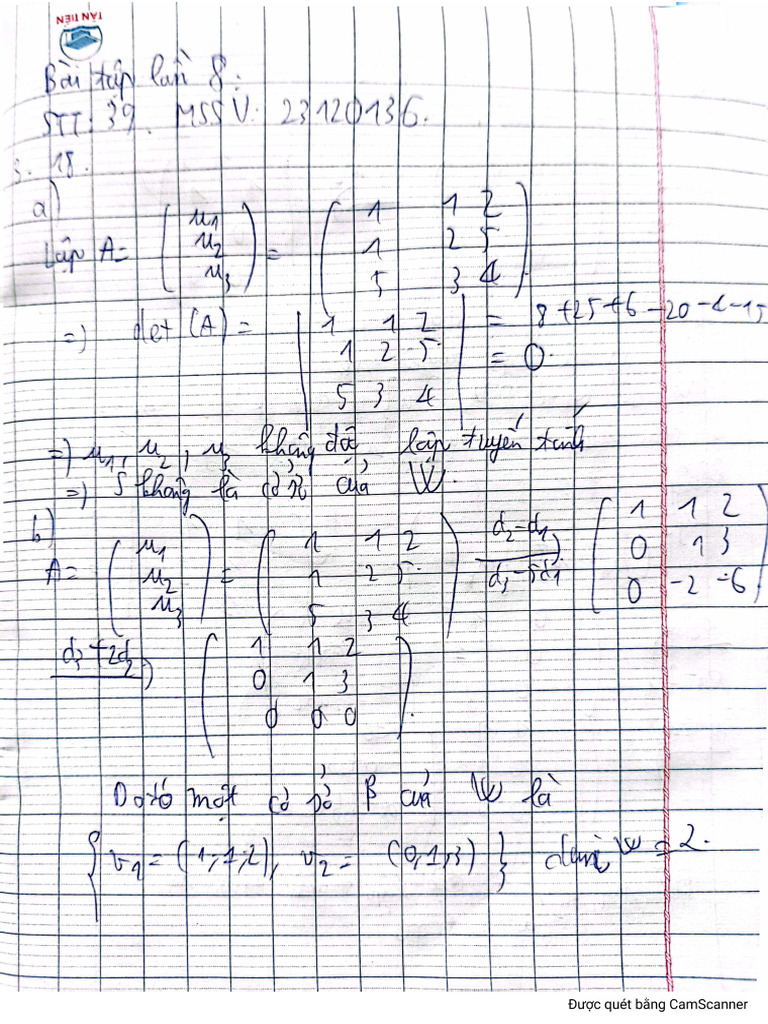 TÂN TIẾN
Bài tập lần 8:
STT: 39. MSSV: 23120136.
3. 18.
a)
Lập A = (u1 u2 u3) = (1 1 2; 1 2 5; 5 3 4)
=) det(A) = |1 1 2; 1 2 5; 5 3 4| = 8+25+6-20-4-15
= 0.
=) u1, u2, u3 không độc lập tuyến tính
=) S không là cơ sở của W.
b)
A = (u1 u2 u3) = (1 1 2; 1 2 5; 5 3 4) d2-d1 d3-5d1 (1 1 2; 0 1 3; 0 -2 -6)
d3+2d2 (1 1 2; 0 1 3; 0 0 0).
Do đó một cơ sở β của W là
{v1 = (1,1,2), v2 = (0,1,3)} dim W = 2.
Được quét bằng CamScanner